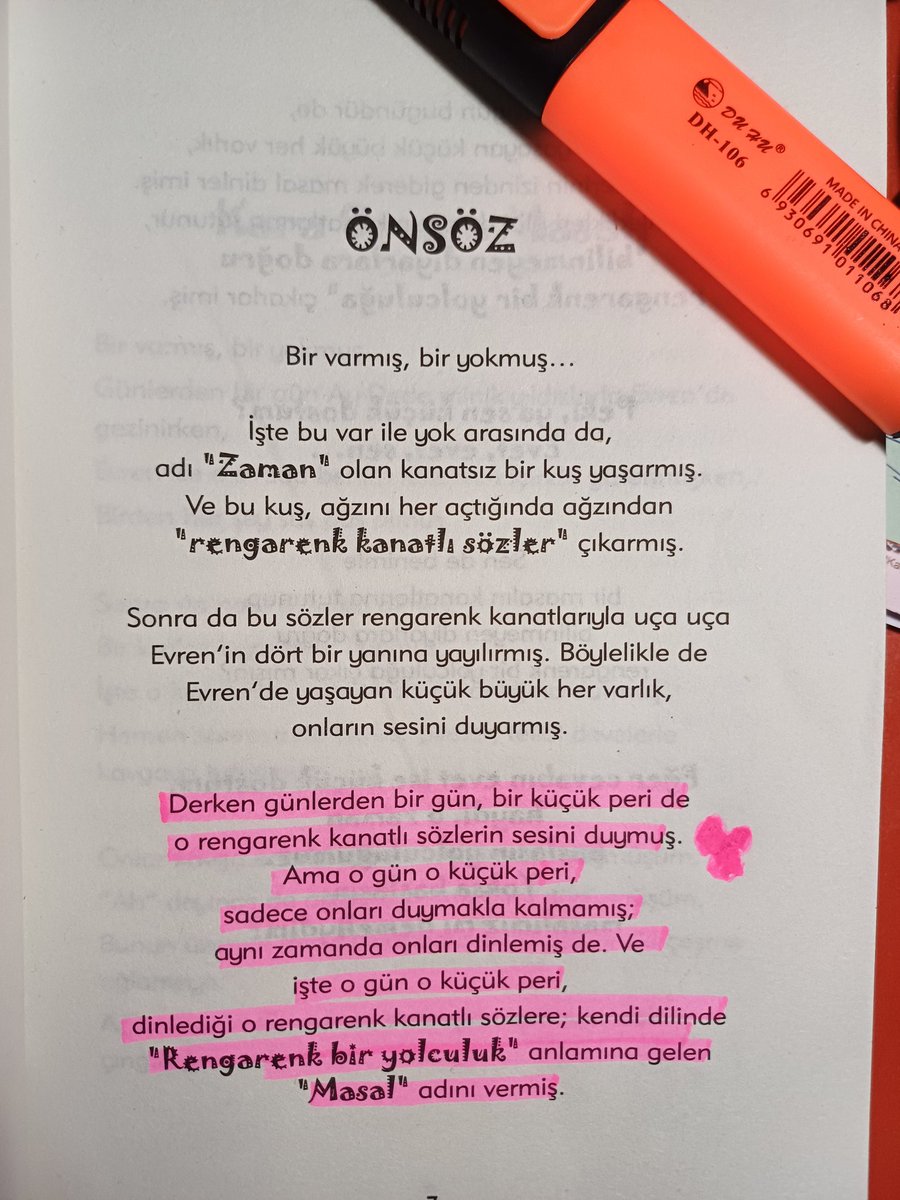 ÖNSÖZ
Bir varmış, bir yokmuş...
İşte bu var ile yok arasında da,
adı "Zaman" olan kanatsız bir kuş yaşarmış.
Ve bu kuş, ağzını her açtığında ağzından
"rengarenk kanatlı sözler" çıkarmış.
Sonra da bu sözler rengarenk kanatlarıyla uça uça
Evren'in dört bir yanına yayılırmış. Böylelikle de
Evren'de yaşayan küçük büyük her varlık,
onların sesini duyarmış.
Derken günlerden bir gün, bir küçük peri de
o rengarenk kanatlı sözlerin sesini duymuş.
Ama o gün o küçük peri,
sadece onları duymakla kalmamış;
aynı zamanda onları dinlemiş de. Ve
işte o gün o küçük peri,
dinlediği o rengarenk kanatlı sözlere; kendi dilinde
"Rengarenk bir yolculuk" anlamına gelen
"Masal" adını vermiş.
DUHU®
DH-106
MADE IN CHINA
6 930691 011068